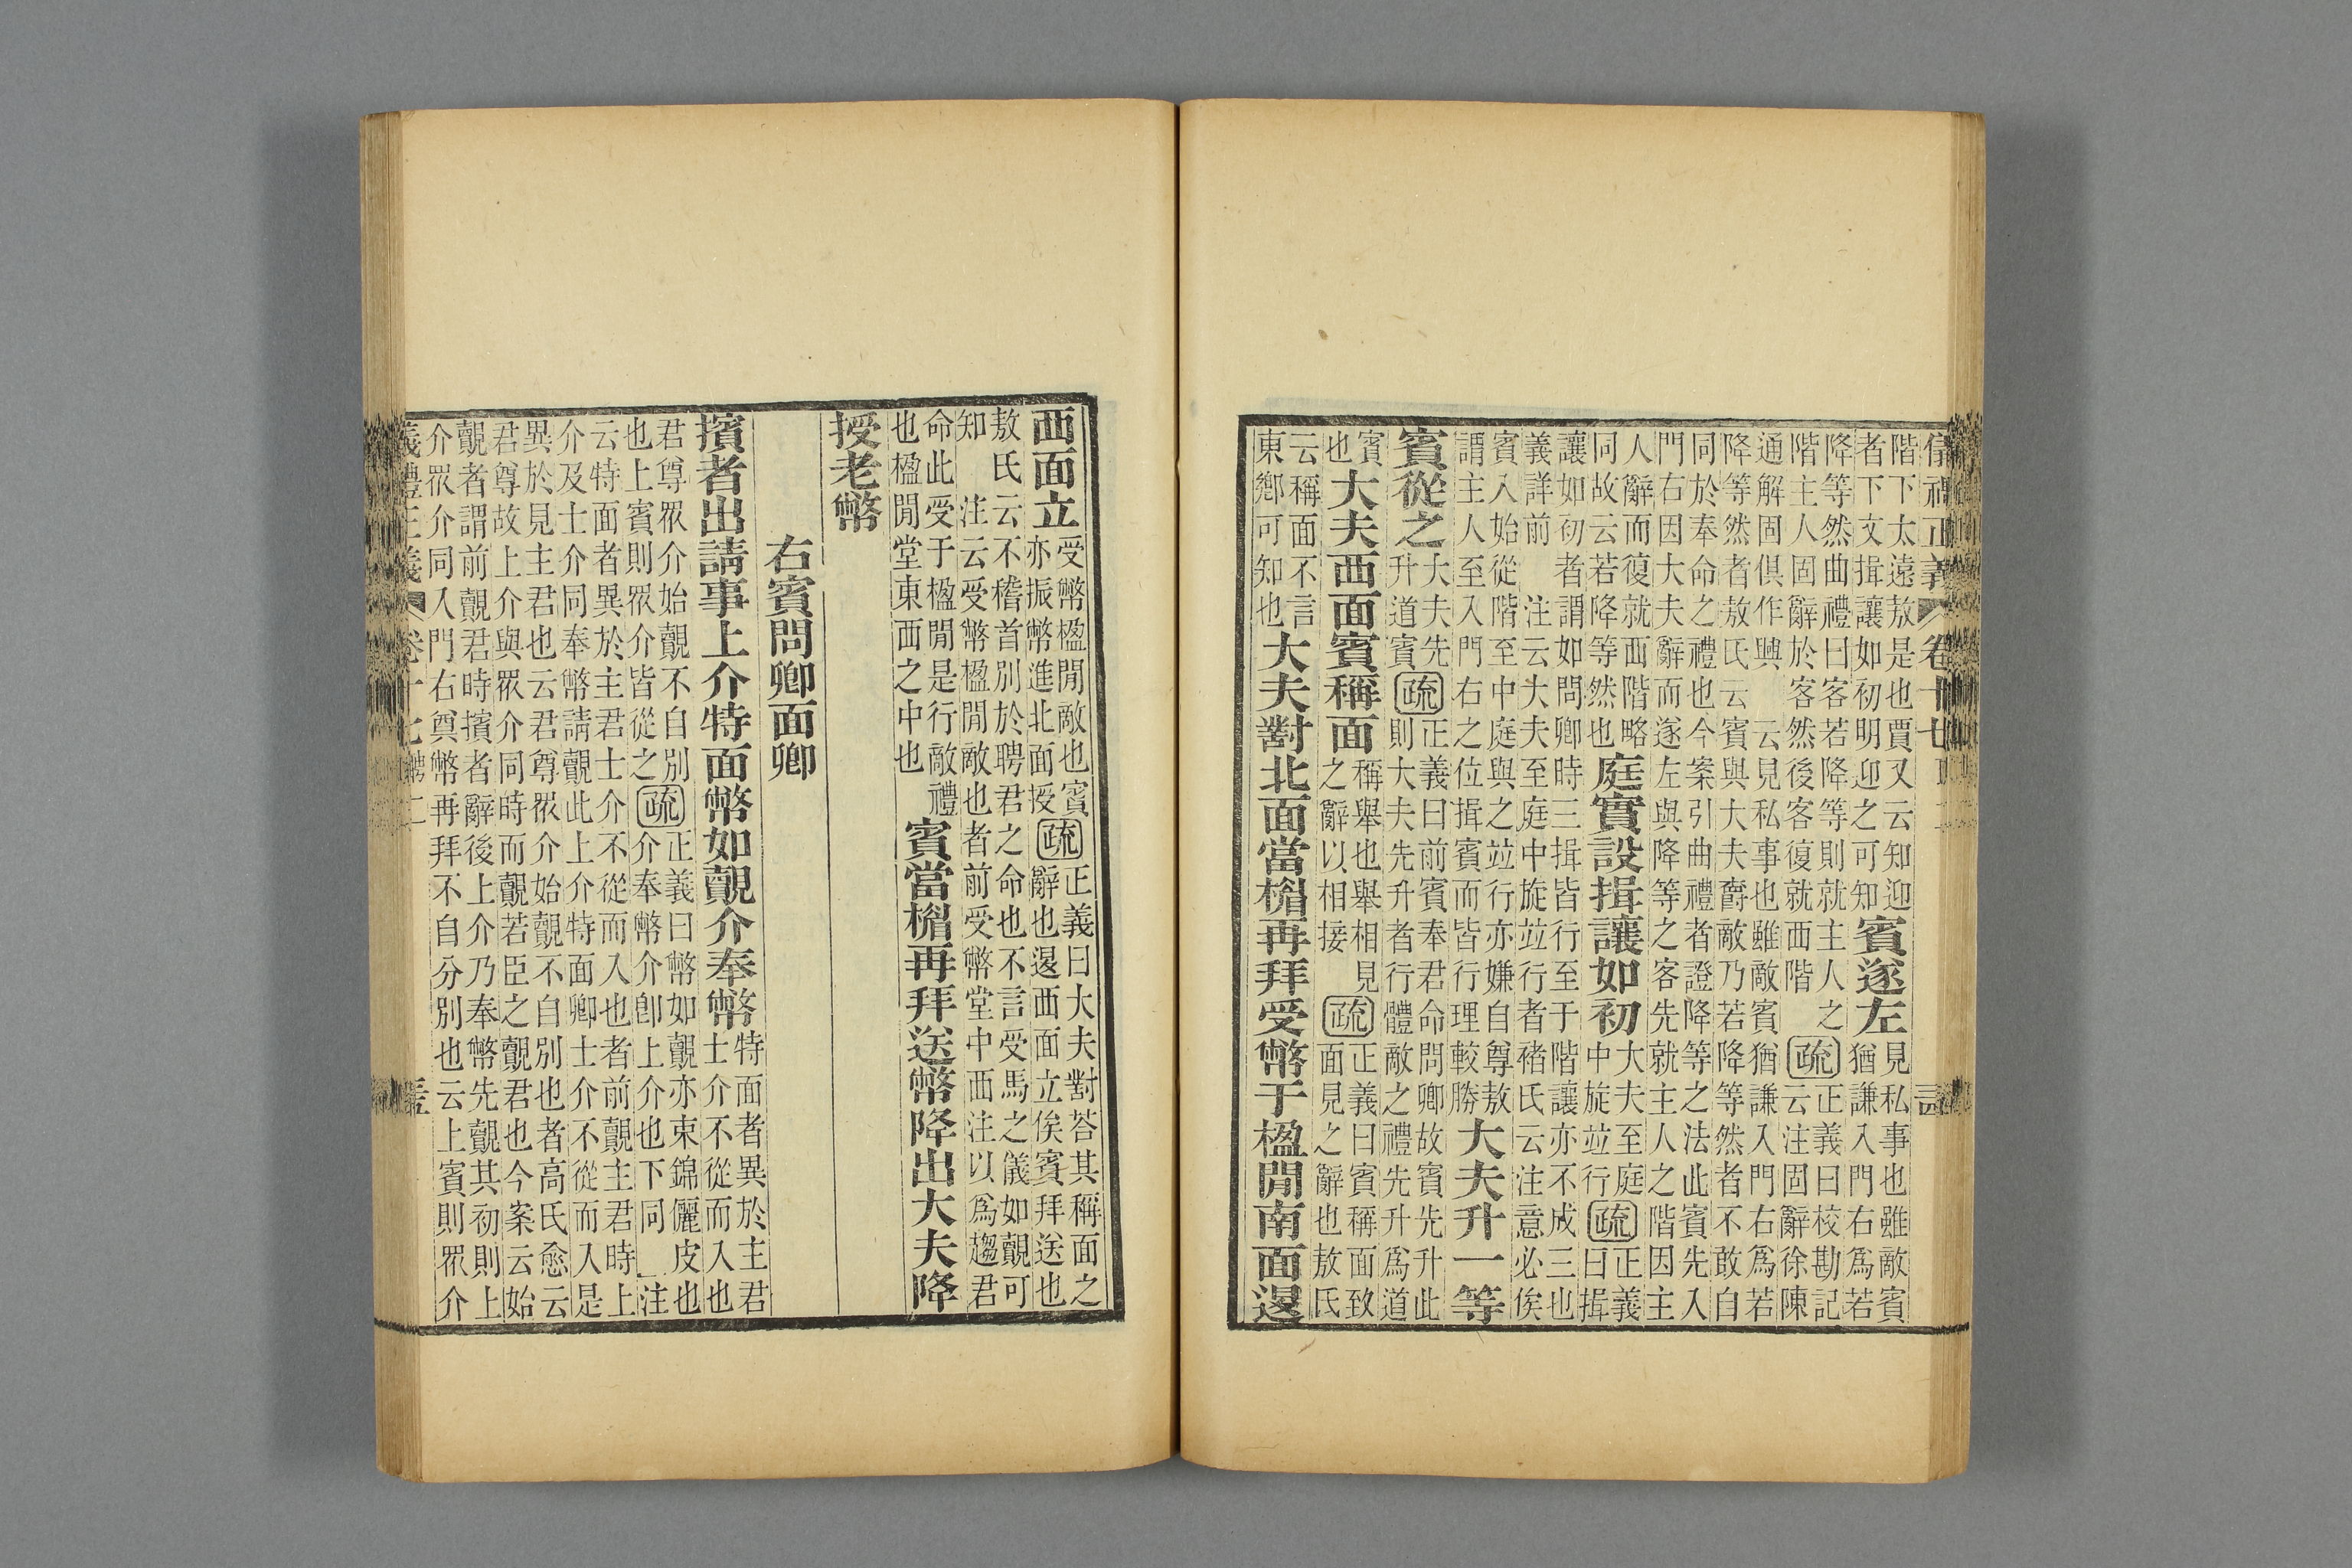 儀禮正義 卷十七
階下太遠敖是也賈又云知迎
者下文揖讓如初明迎之可知賓遂左見私事也雖敵賓
猶謙入門右爲若
降等然曲禮曰客若降等則就主人之
階主人固辭於客然後客復就西階疏正義曰校勘記
云注固辭徐陳
通解固俱作與 云見私事也雖敵賓猶謙入門右爲若
降等然者敖氏云賓與大夫奠敵乃若降等然者不敢自
同於奉命之禮也今案引曲禮者證降等之法此賓先入
門右因大夫辭而遂左與降等之客先就主人之階因主
人辭而復就西階略
同故云若降等然也庭實設揖讓如初大夫至庭
中旋竝行疏正義
曰揖
讓如初者謂如問卿時三揖皆行至于階讓亦不成三也
義詳前 注云大夫至庭中旋竝行者褚氏云注意必俟
賓入始從階至中庭與之竝行亦嫌自尊敖
謂主人至入門右之位揖賓而皆行理較勝大夫升一等
賓從之大夫先
升道賓疏正義曰前賓奉君命問卿故賓先升此
則大夫先升者行體敵之禮先升爲道
賓
也大夫西面賓稱面稱舉也舉相見
之辭以相接疏正義曰賓稱面致
面見之辭也敖氏
云稱面不言
東鄉可知也大夫對北面當楣再拜受幣于楹閒南面退
西面立受幣楹閒敵也賓
亦振幣進北面授疏正義曰大夫對荅其稱面之
辭也退西面立俟賓拜送也
敖氏云不稽首別於聘君之命也不言受馬之儀如覿可
知 注云受幣楹閒敵也者前受幣堂中西注以爲趨君
命此受于楹閒是行敵禮
也楹閒堂東西之中也賓當楣再拜送幣降出大夫降
授老幣
右賓問卿面卿
擯者出請事上介特面幣如覿介奉幣特面者異於主君
士介不從而入也
君尊眾介始覿不自別
也上賓則眾介皆從之疏正義曰幣如覿亦束錦儷皮也
介奉幣介卽上介也下同 注
云特面者異於主君士介不從而入也者前覿主君時上
介及士介同奉幣請覿此上介特面卿士介不從而入是
異於見主君也云君尊眾介始覿不自別也者高氏愈云
君尊故上介與眾介同時而覿若臣之覿君也今案云始
覿者謂前覿君時擯者辭後上介乃奉幣先覿其初則上
介眾介同入門右奠幣再拜不自分別也云上賓則眾介
儀禮正義 卷十七 聘二